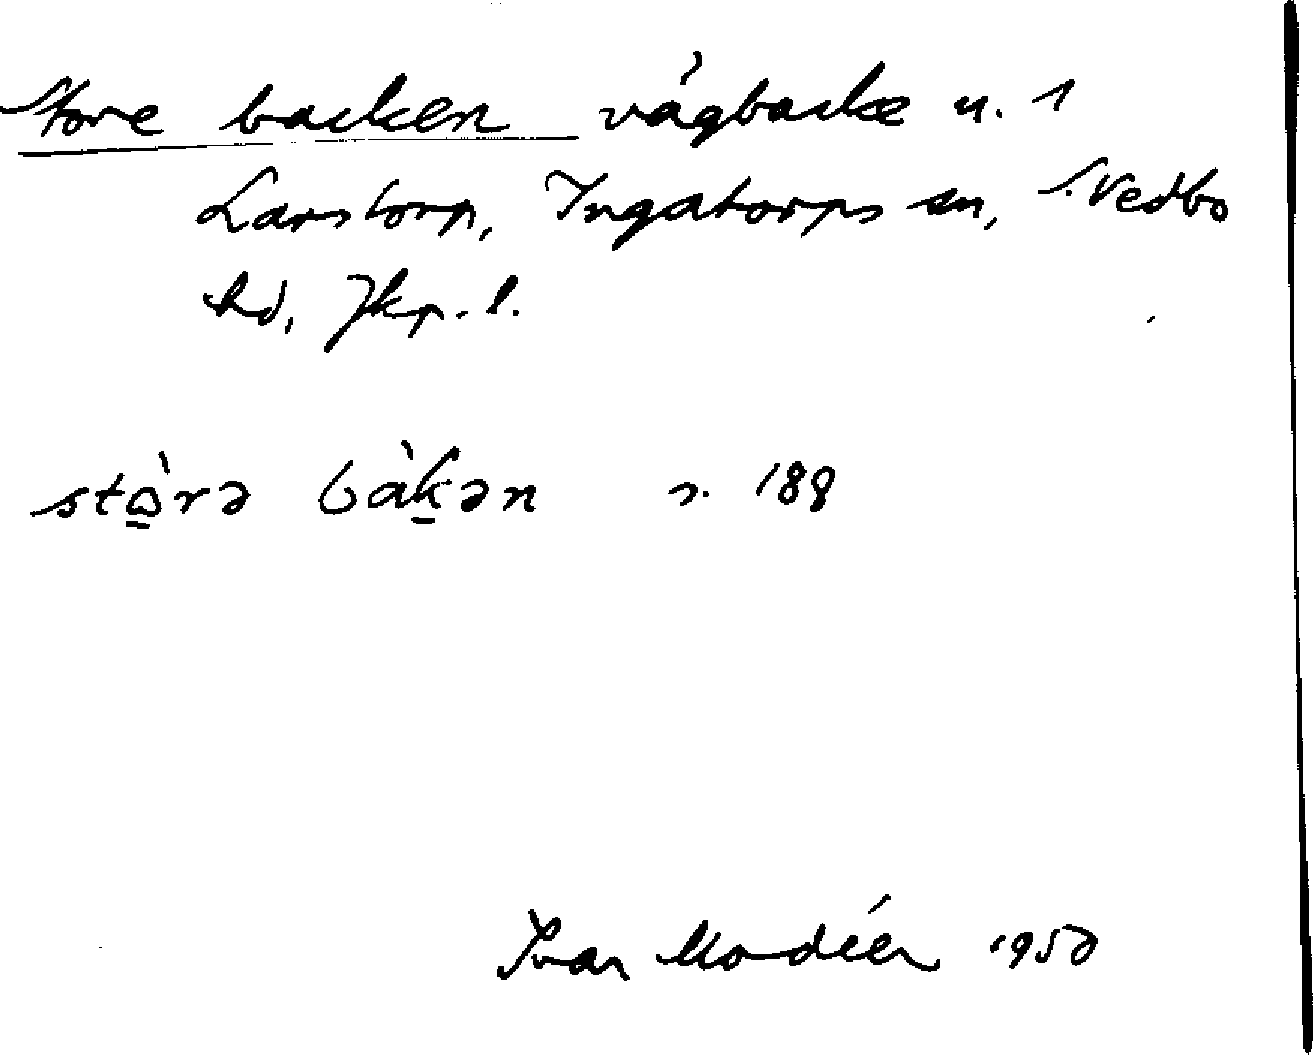 Store backen vågbacke n. 1
Larstorp, Ingatorps sn, S. Vedbo
hd, Jkp. l.
stɷ̀rə bàkən s. 188
Ivar Modéer 1950